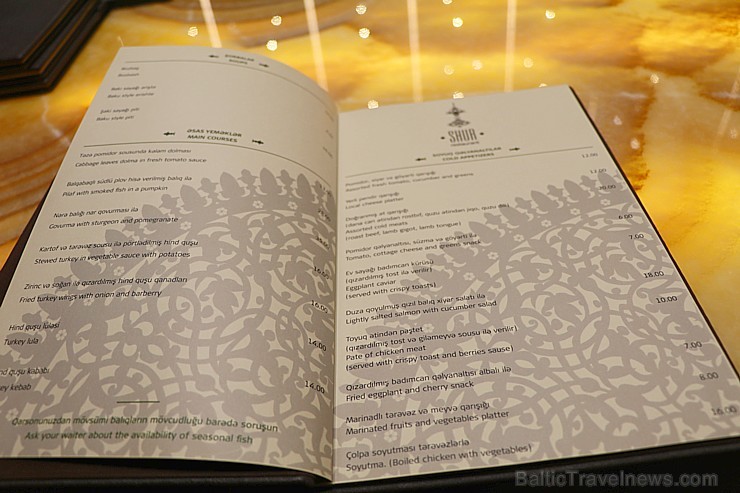 SOUPS
Bakı sayağı ərişta
Baku style arishta
Şəki sayağı piti
Baku style piti
ƏSAS YEMƏKLƏR
MAIN COURSES
Təzə pomidor sousunda kələm dolması
Cabbage leaves dolma in fresh tomato sauce
Balqabaqlı südlü plov hisə verilmiş balıq ilə
Pilaf with smoked fish in a pumpkin
Nərə balığı nar qovurması ilə
Govurma with sturgeon and pomegranate
Kartof və tərəvəz sousu ilə pörtlədilmiş hind quşu
Stewed turkey in vegetable sauce with potatoes
16.00
Zirinc və soğan ilə qızardılmış hind quşu qanadları
Fried turkey wings with onion and barberry
16.00
Hind quşu lüləsi
Turkey lula
14.00
quşu kababı
kebab
14.00
Qarsonunuzdan mövsümi balıqların mövcudluğu barədə soruşun
Ask your waiter about the availability of seasonal fish
SHUR
SOYUQ QƏLYANALTILAR
COLD APPETIZERS
Pomidor, xiyar və göyərti qarışığı
Assorted fresh tomato, cucumber and greens
12.00
Yerli pendir qarışığı
Local cheese platter
12.00
Doğranmış ət qarışığı
(dana ətindən rostbif, quzu ətindən jiqo, quzu dili)
Assorted cold meats
(roast beef, lamb gigot, lamb tongue)
20.00
Pomidor qəlyanaltısı, süzmə və göyərti ilə
Tomato, cottage cheese and green snack
6.00
Ev sayağı badımcan kürüsü
(qızardılmış tost ilə verilir)
Eggplant caviar
(served with crispy toasts)
7.00
Duza qoyulmuş qızıl balıq xiyar salatı ilə
Lightly salted salmon with cucumber salad
18.00
Toyuq ətindən paştet
(qızardılmış tost və giləmeyvə sousu ilə verilir)
Pate of chicken meat
(served with crispy toast and berries sauce)
10.00
Qızardılmış badımcan qəlyanaltısı albalı ilə
Fried eggplant and cherry snack
7.00
Marinadlı tərəvəz və meyvə qarışığı
Marinated fruits and vegetables platter
8.00
Çolpa soyutması tərəvəzlərlə
Soyutma. (Boiled chicken with vegetables)
16.00
BalticTravelnews.com